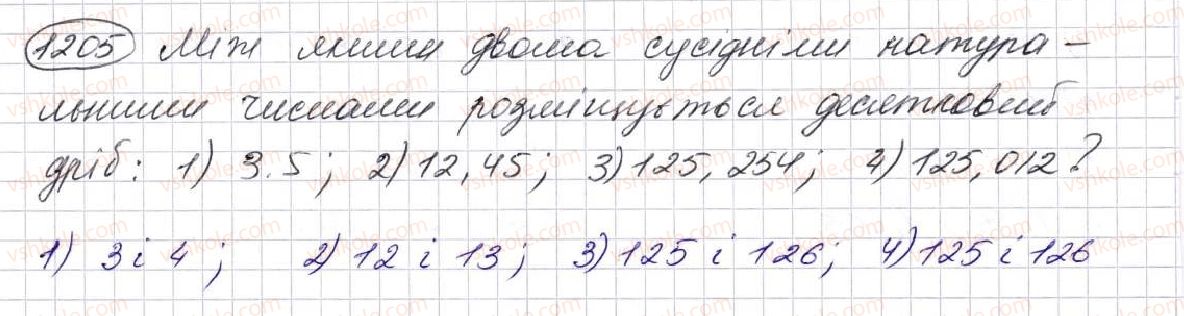 1205 Між якими двома сусідніми натура-
льними числами розміщується десятковий
дріб: 1) 3.5; 2) 12,45; 3) 125,254; 4) 125,012?
1) 3 і 4; 2) 12 і 13; 3) 125 і 126; 4) 125 і 126